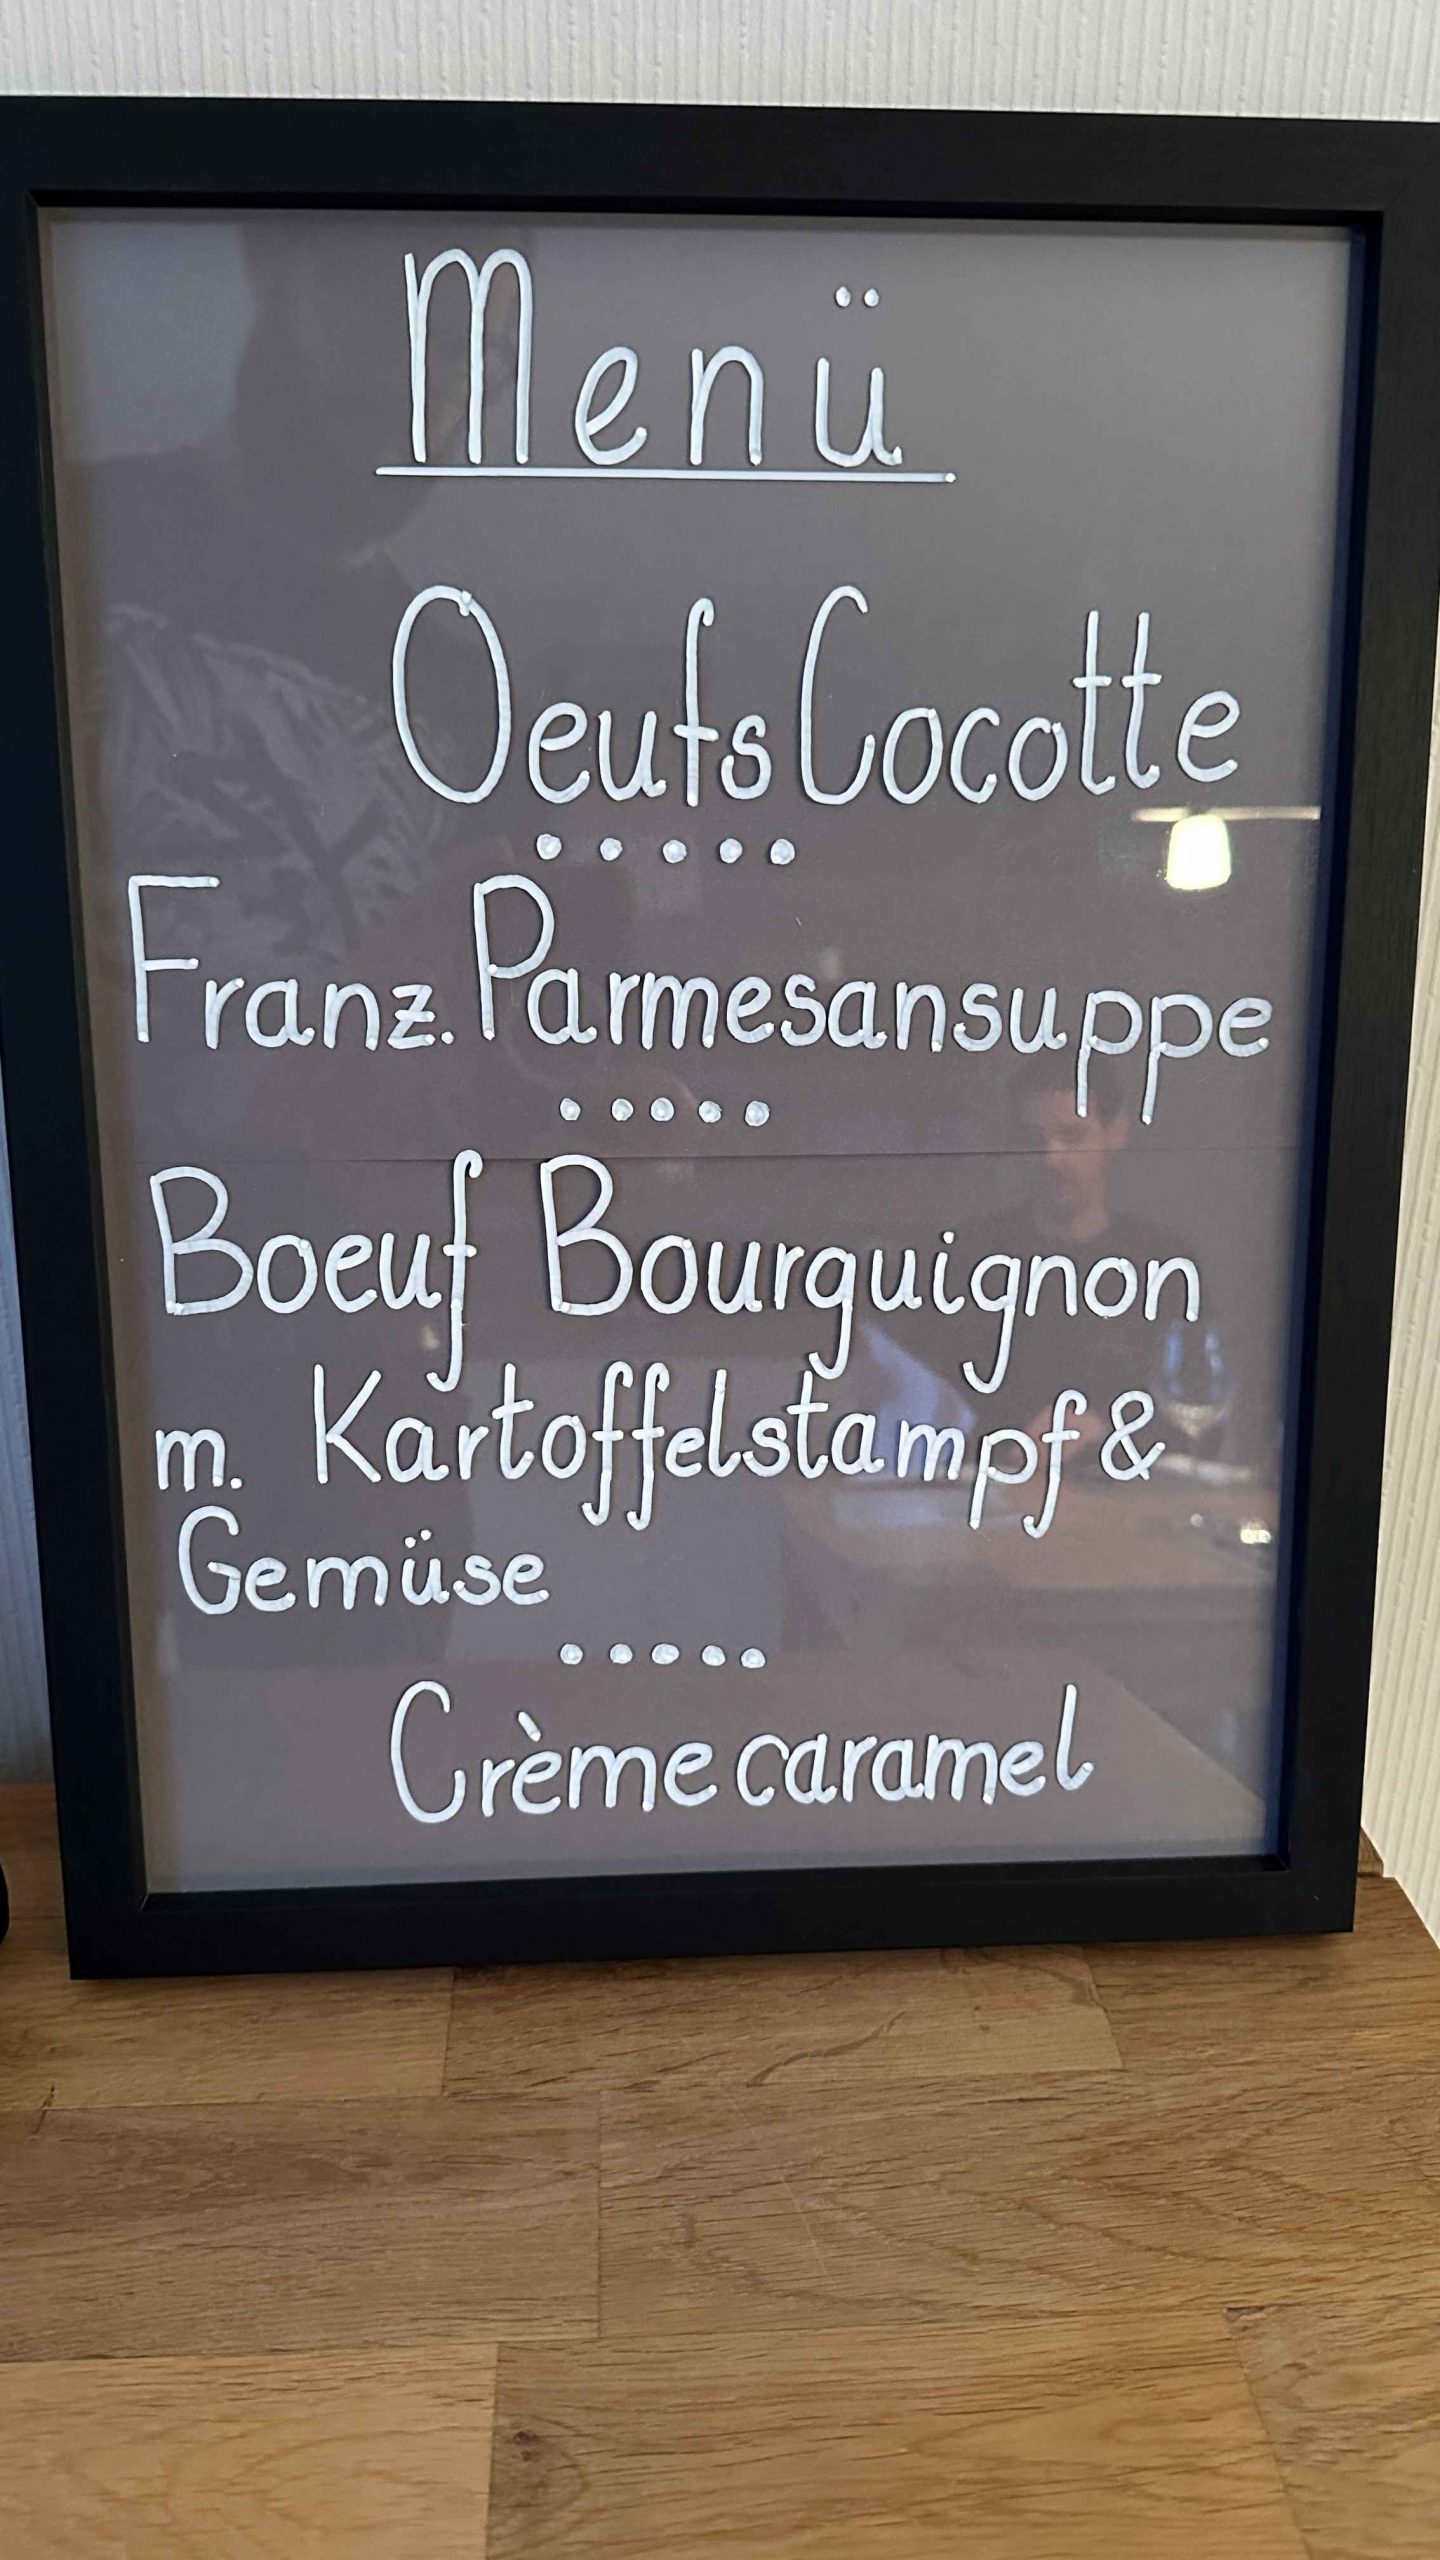 Menü
Oeufs Cocotte
.....
Franz. Parmesansuppe
.....
Boeuf Bourguignon
m. Kartoffelstampf &
Gemüse
.....
Crème caramel